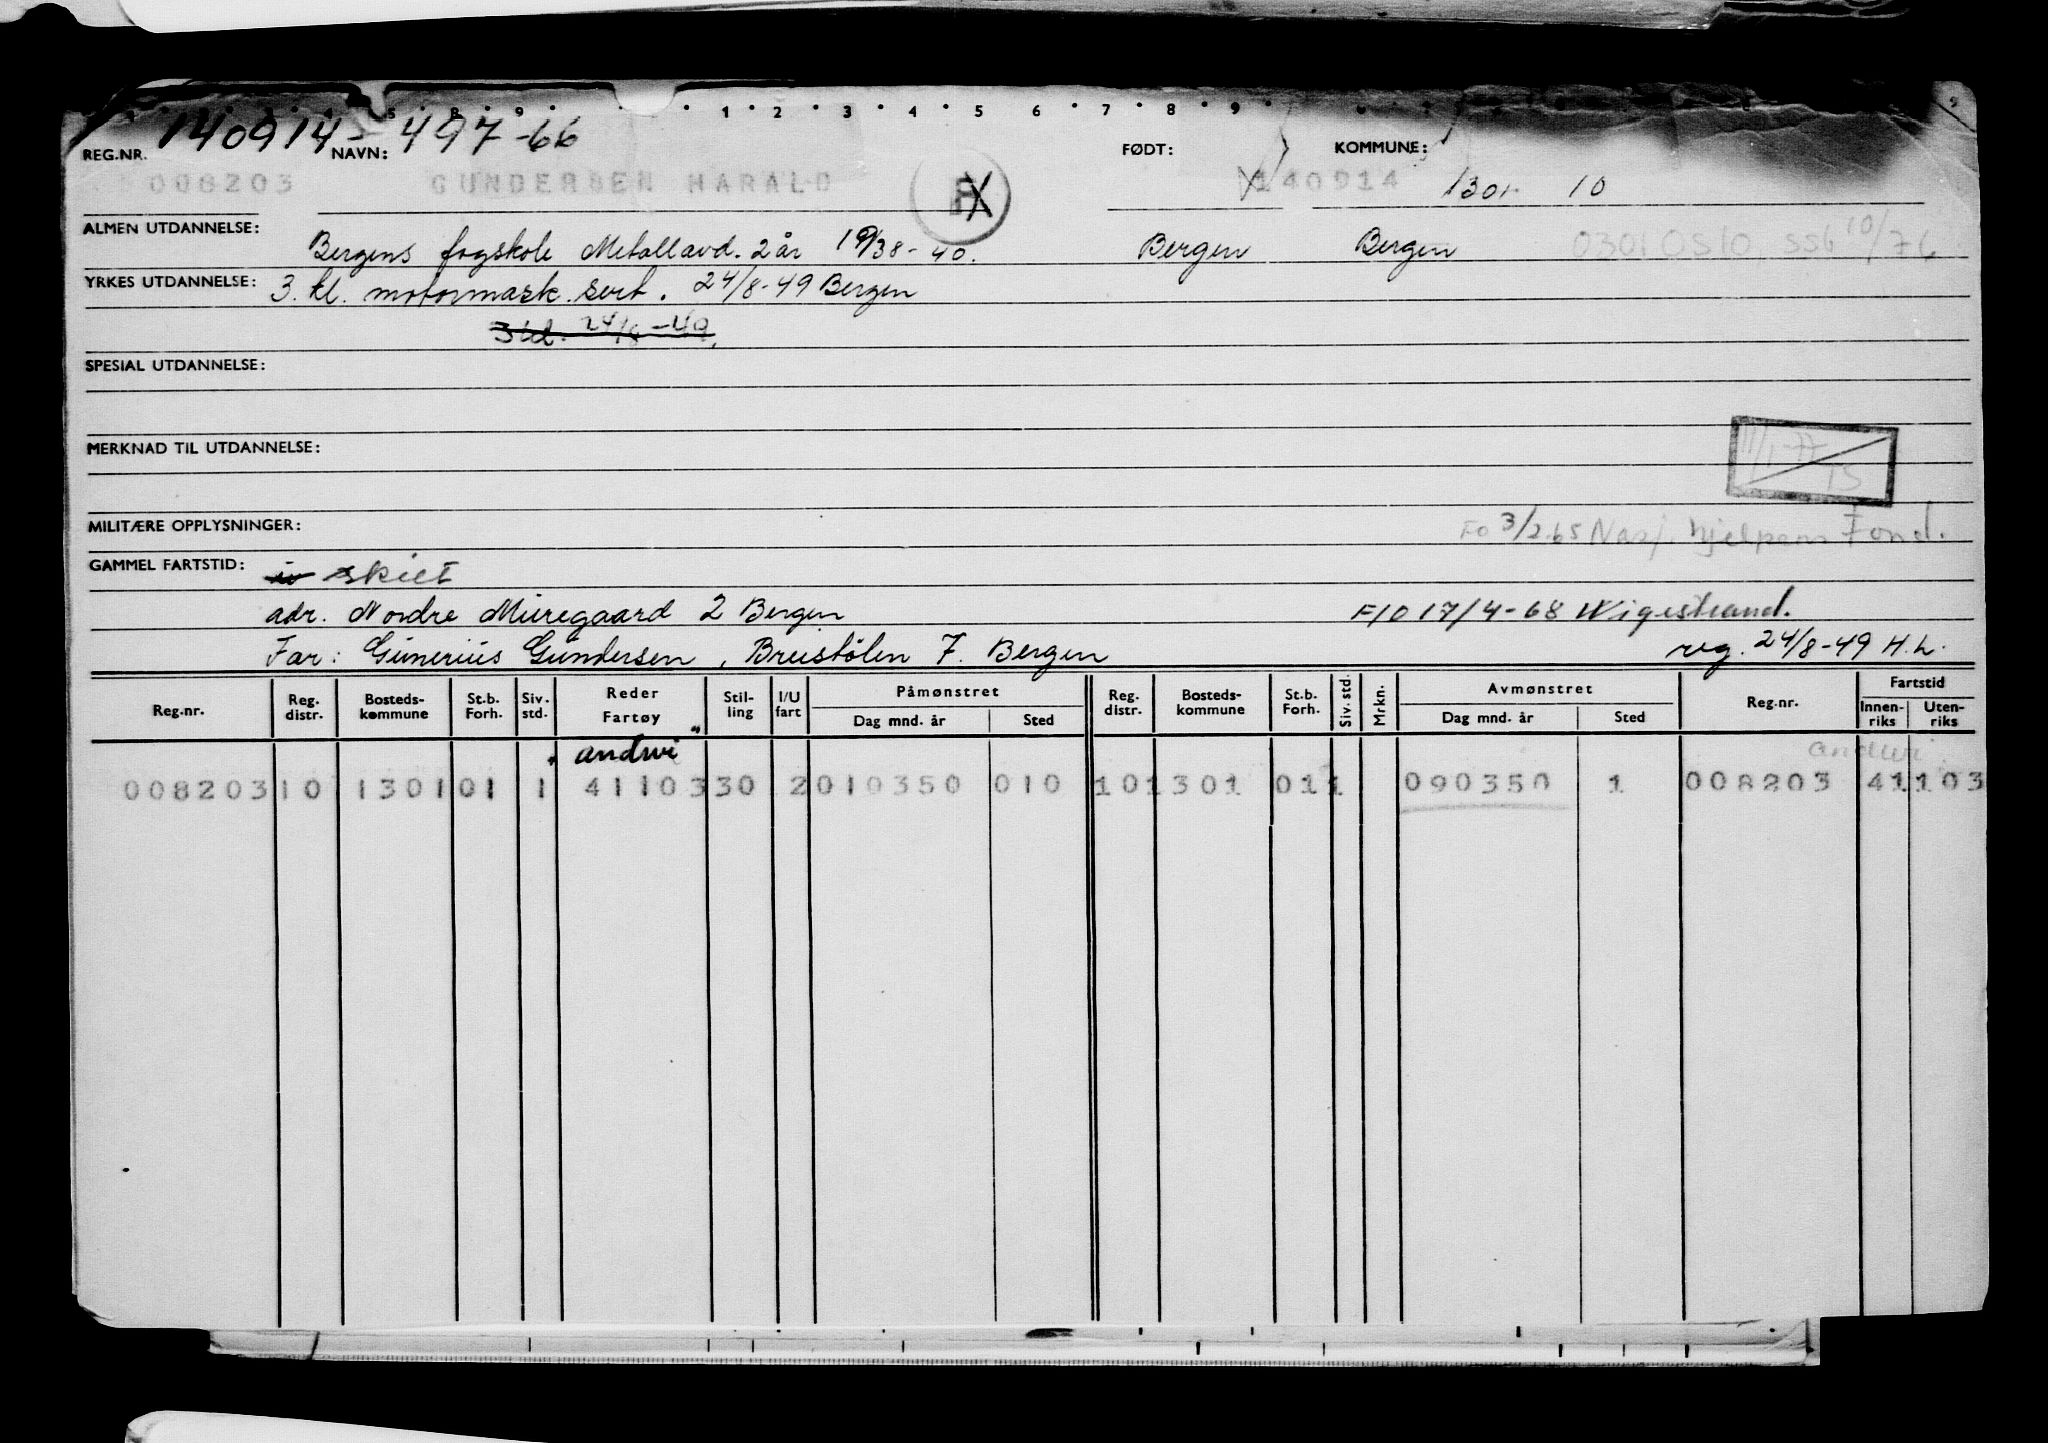 5 8 9 1 2 3 4 5 6 7 8 9
140914-497-66
REG.NR. NAVN: FØDT: KOMMUNE:
008203 GUNDERSEN HARALD 140914 1301 10
ALMEN UTDANNELSE: Bergens fagskole Metallavd. 2 år 19/38-40. Bergen Bergen 0301 OSLO SSB 10/76
YRKES UTDANNELSE: 3. kl. motormask. sert. 24/8-49 Bergen
3 kl. 24/8-49.
SPESIAL UTDANNELSE:
MERKNAD TIL UTDANNELSE:
11/1-77
MILITÆRE OPPLYSNINGER: Fo 3/2.65 Nasj. hjelpens Fond.
GAMMEL FARTSTID: skilt
adr. Nordre Müregaard 2 Bergen F/O 17/4-68 Wigestrand.
Far: Günerius Gündersen, Breistølen 7. Bergen reg. 24/8-49 H.L.
Reg.nr. Reg. distr. Bosteds-kommune St.b. Forh. Siv. std. Reder Fartøy Stil-ling I/U fart Påmønstret Dag mnd. år Sted Reg. distr. Bosteds-kommune St.b. Forh. Siv. std. Mrkn. Avmønstret Dag mnd. år Sted Reg.nr. Fartstid Innen-riks Uten-riks
"andwi" andwi
008203 10 1301 01 1 41103 30 2 010350 010 10 1301 01 1 090350 1 008203 41103